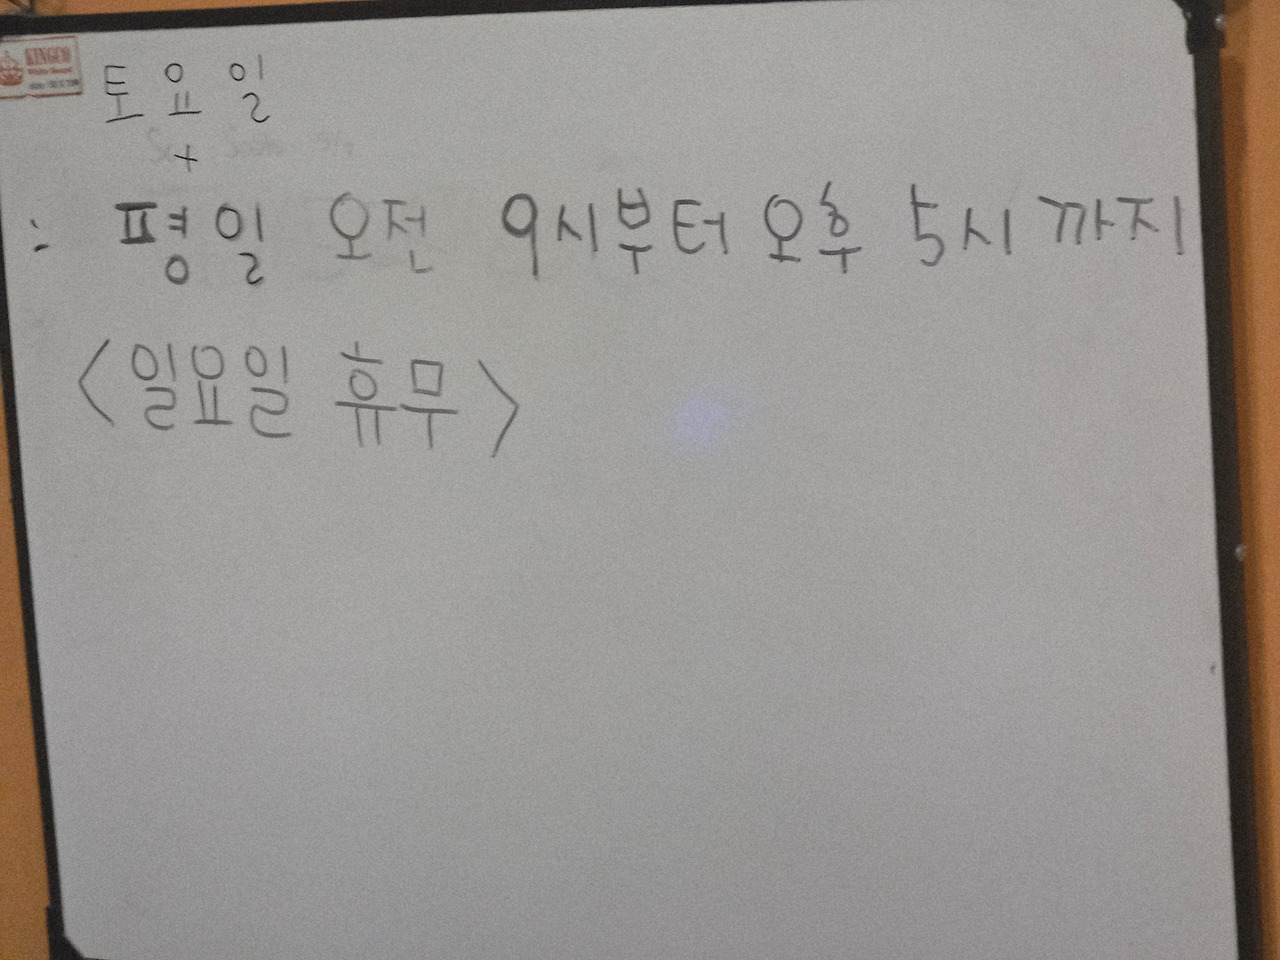 KINGCO
토요일
+
: 평일 오전 9시부터 오후 5시까지
<일요일 휴무>